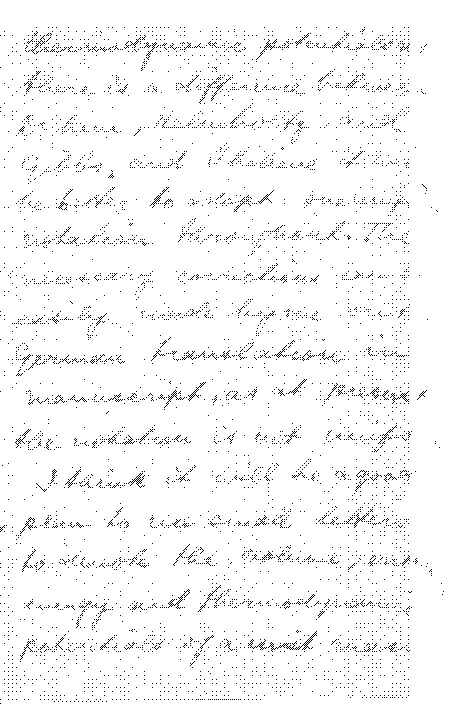 thermodynamic potentials,
there is a difference between
Gibbs, and I believe it
be better to adopt one
notation throughout. The
necessary corrections can
easily made by me
German translation in
manuscript, as at present
the notation is not
I think it will be a good
plan to use small letters
to denote the volume,
energy and thermodynamic
potentials of a unit mass